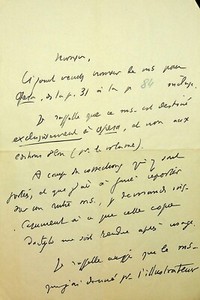 Monsieur,
Ci-joint veuillez trouver le ms. pour
Opera, de la p. 31 à la p. 84
Je rappelle que ce ms. est destiné
exclusivement à Opera, et non aux
(pr le volume).
A cause de corrections qu'il y
portées, et que j'ai à faire reporter
sur un autre ms., je demande
à ce que cette copie
dactylo me soit rendue après usage
Je rappelle aussi que le ms.
que j'ai donné pr l'illustrateur